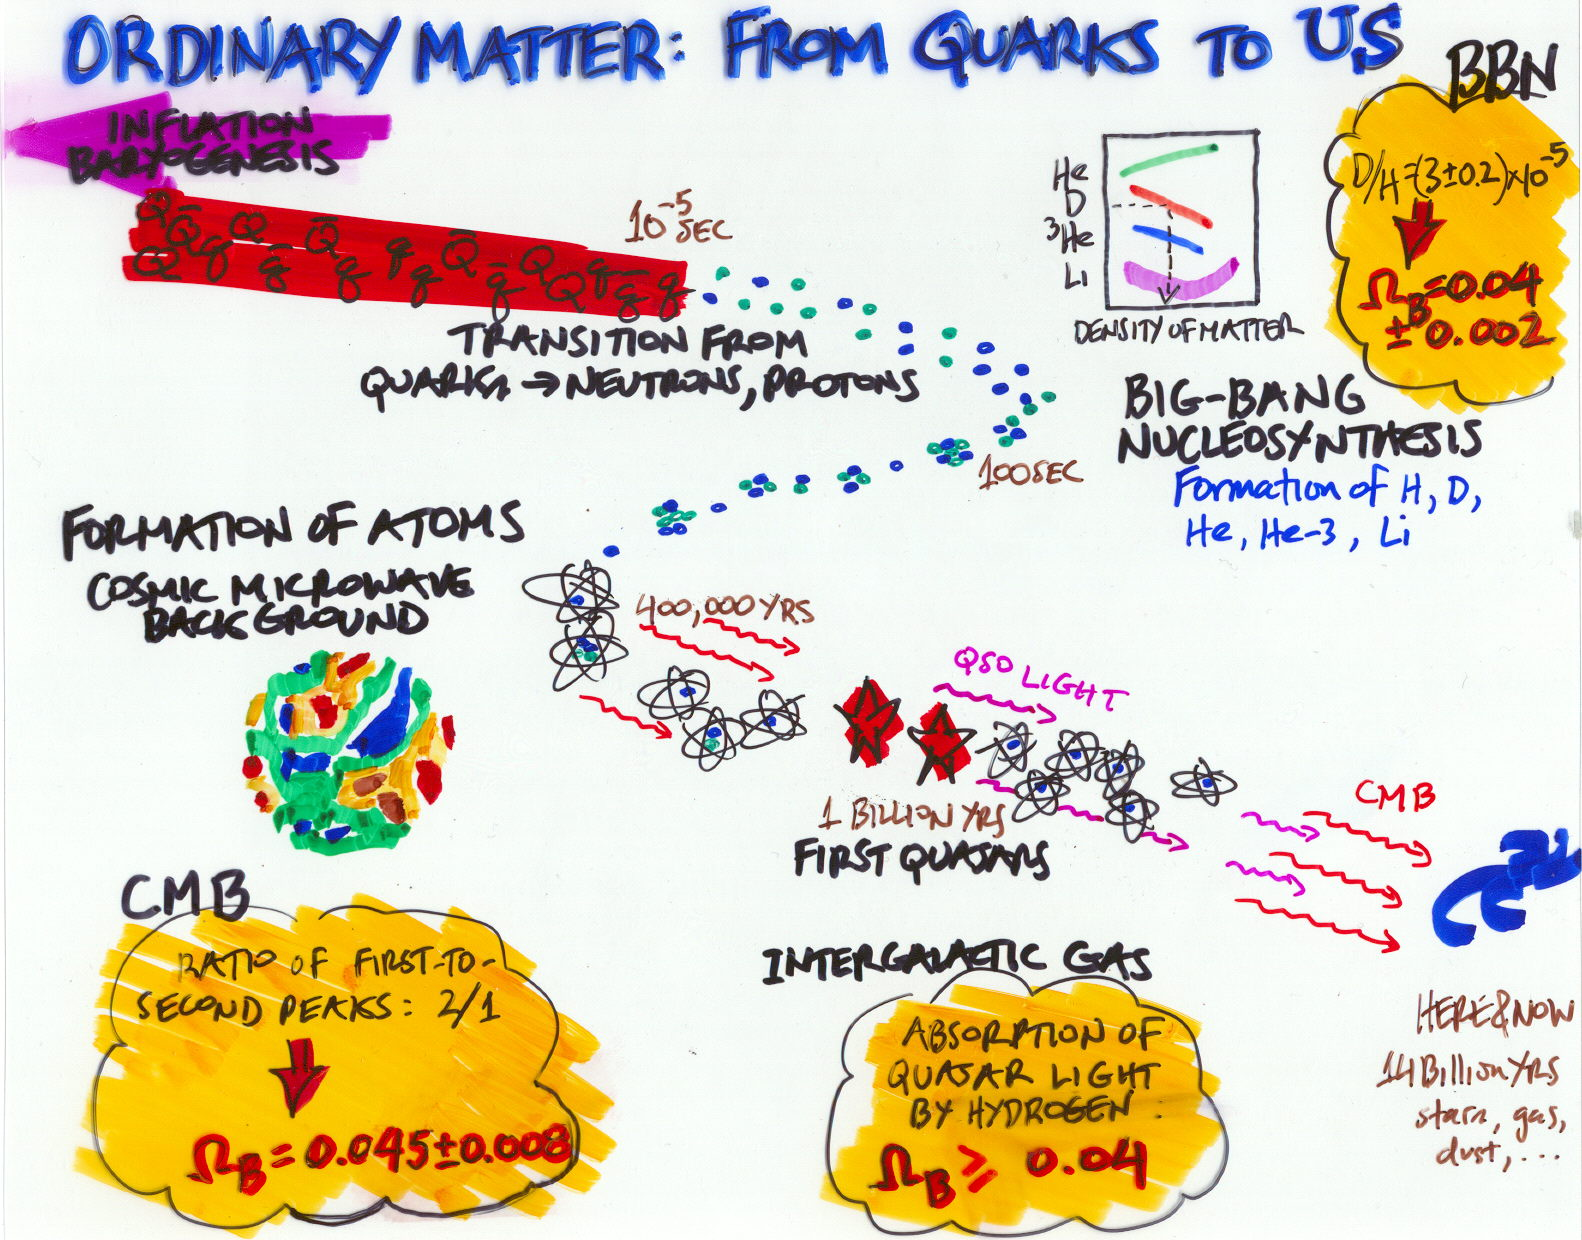 ORDINARY MATTER: FROM QUARKS TO US
INFLATION
BARYOGENESIS
Q Q̄ Q Q̄ q q Q̄ Q q
Q q q̄ q q q̄ Q q̄ q
10⁻⁵
SEC
TRANSITION FROM
QUARKS → NEUTRONS, PROTONS
He
D
³He
Li
DENSITY OF MATTER
BBN
D/H=(3±0.2)×10⁻⁵
Ω_B=0.04
±0.002
BIG-BANG
NUCLEOSYNTHESIS
Formation of H, D,
He, He-3, Li
100SEC
FORMATION OF ATOMS
COSMIC MICROWAVE
BACKGROUND
400,000 YRS
QSO LIGHT
1 BILLION YRS
FIRST QUASARS
CMB
CMB
RATIO OF FIRST-TO-
SECOND PEAKS: 2/1
Ω_B = 0.045±0.008
INTERGALACTIC GAS
ABSORPTION OF
QUASAR LIGHT
BY HYDROGEN:
Ω_B ≥ 0.04
HERE & NOW
14 Billion YRS
stars, gas,
dust, ...